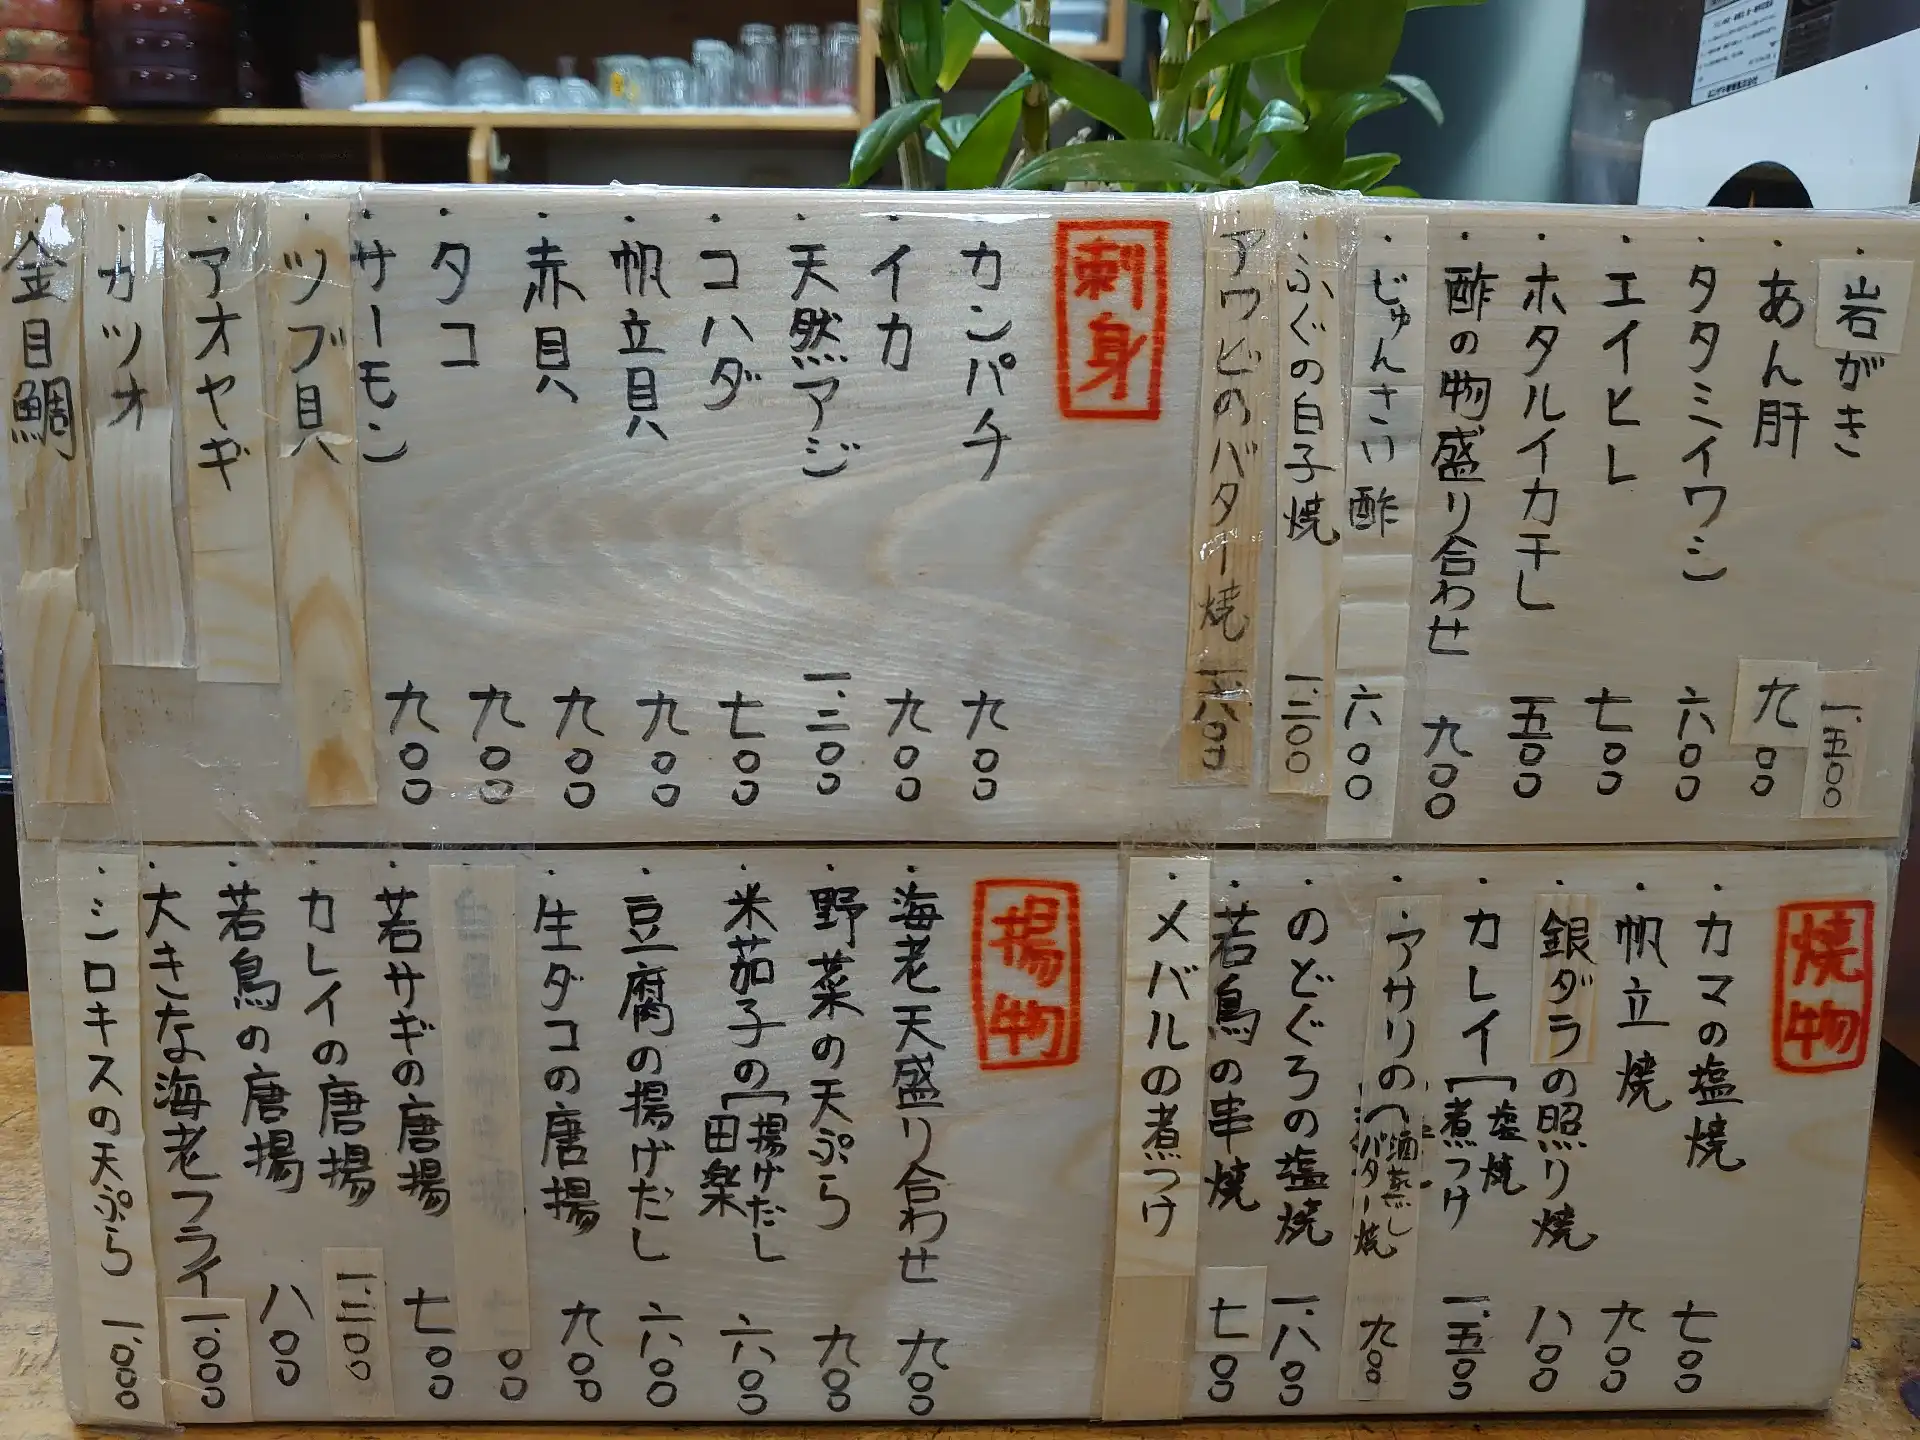 ・岩がき 一.五〇〇
・あん肝 九〇〇
・タタミイワシ 六〇〇
・エイヒレ 七〇〇
・ホタルイカ干し 五〇〇
・酢の物盛り合わせ 九〇〇
・じゅんさい酢 六〇〇
・ふぐの白子焼 一.三〇〇
・アワビのバター焼 一.八〇〇
刺身
・カンパチ 九〇〇
・イカ 九〇〇
・天然アジ 一.三〇〇
・コハダ 七〇〇
・帆立貝 九〇〇
・赤貝 九〇〇
・タコ 九〇〇
・サーモン 九〇〇
・ツブ貝
・アオヤギ
・カツオ
・金目鯛
焼物
・カマの塩焼 七〇〇
・帆立焼 九〇〇
・銀ダラの照り焼 八〇〇
・カレイ[塩焼 煮つけ 一.五〇〇
・アサリの[酒蒸し バター焼 九〇〇
・のどぐろの塩焼 一.八〇〇
・若鳥の串焼 七〇〇
・メバルの煮つけ
揚物
・海老天盛り合わせ 九〇〇
・野菜の天ぷら 九〇〇
・米茄子の[揚げだし 田楽 六〇〇
・豆腐の揚げだし 六〇〇
・生ダコの唐揚 九〇〇
・若サギの唐揚 七〇〇
・カレイの唐揚 一.三〇〇
・若鳥の唐揚 八〇〇
・大きな海老フライ 一.〇〇〇
・シロキスの天ぷら 一.〇〇〇